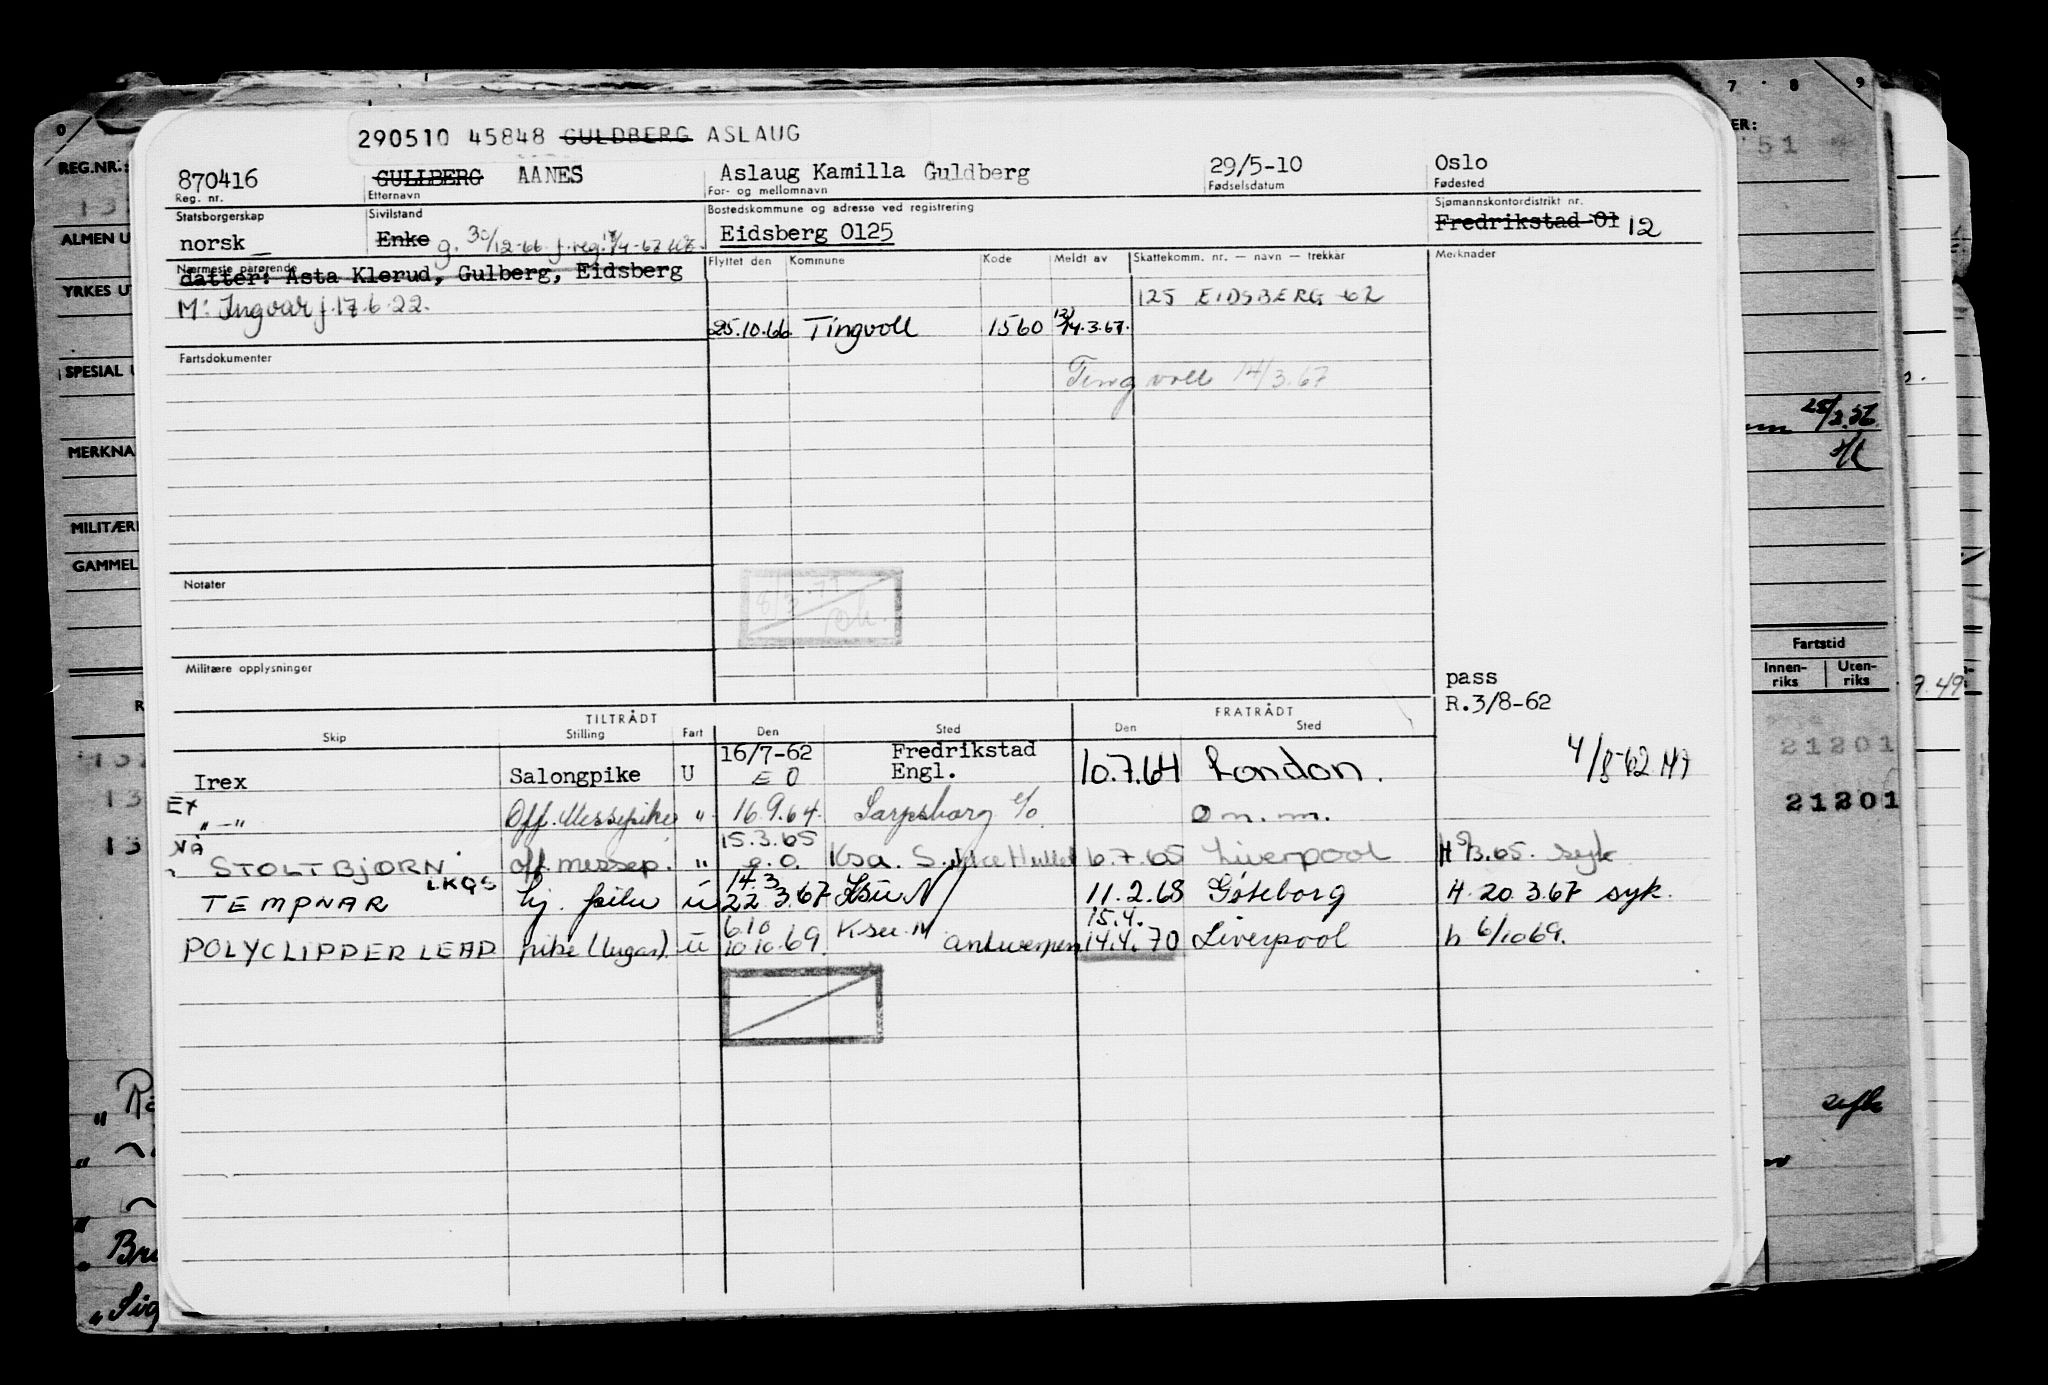 290510 45848 GULDBERG ASLAUG
870416 GULLBERG AANES Aslaug Kamilla Guldberg 29/5-10 Oslo
Reg. nr. Etternavn For- og mellomnavn Fødselsdatum Fødested
Statsborgerskap Sivilstand Bostedskommune og adresse ved registrering Sjømannskontordistrikt nr.
norsk Enke g. 30/12-66 f. reg. Eidsberg 0125 Fredrikstad 01 12
Nærmeste pårørende Flyttet den Kommune Kode Meldt av Skattekomm. nr. — navn — trekkår Merknader
datter: Asta Klerud, Gulberg, Eidsberg
125 EIDSBERG 62
M: Ingvar f. 17.6.22.
25.10.66 Tingvoll 1560 14.3.67.
Fartsdokumenter
Tingvoll 14/3.67
Notater
8/3-71
Militære opplysninger
pass
R.3/8-62
TILTRÅDT FRATRÅDT
Skip Stilling Fart Den Sted Den Sted
16/7-62 Fredrikstad
Irex Salongpike U E O Engl. 10.7.64 London. 4/8-62
Ex
" — " Off. Messepike " 16.9.64 Sarpsborg e/o o m. m.
Nå 15.3.65
STOLT BJØRN off. messep. " e.o. Ksa. 6.7.65 Liverpool syk
LKQS 14.3
TEMPNAR lug. pike u 22.3.67 Ksu N 11.2.68 Göteborg H. 20.3.67 syk.
6.10 15.4.
POLYCLIPPER LEAD pike (lugar) u 10.10.69. Ksu. N antwerpen 14.4.70 Liverpool h 6/10 69.
REG.NR.:
ALMEN U
YRKES U
SPESIAL U
MERKNA
MILITÆR
GAMMEL
7 8 9
ER:
51
Fartstid
Innen-riks Uten-riks
9.49
21201
21201